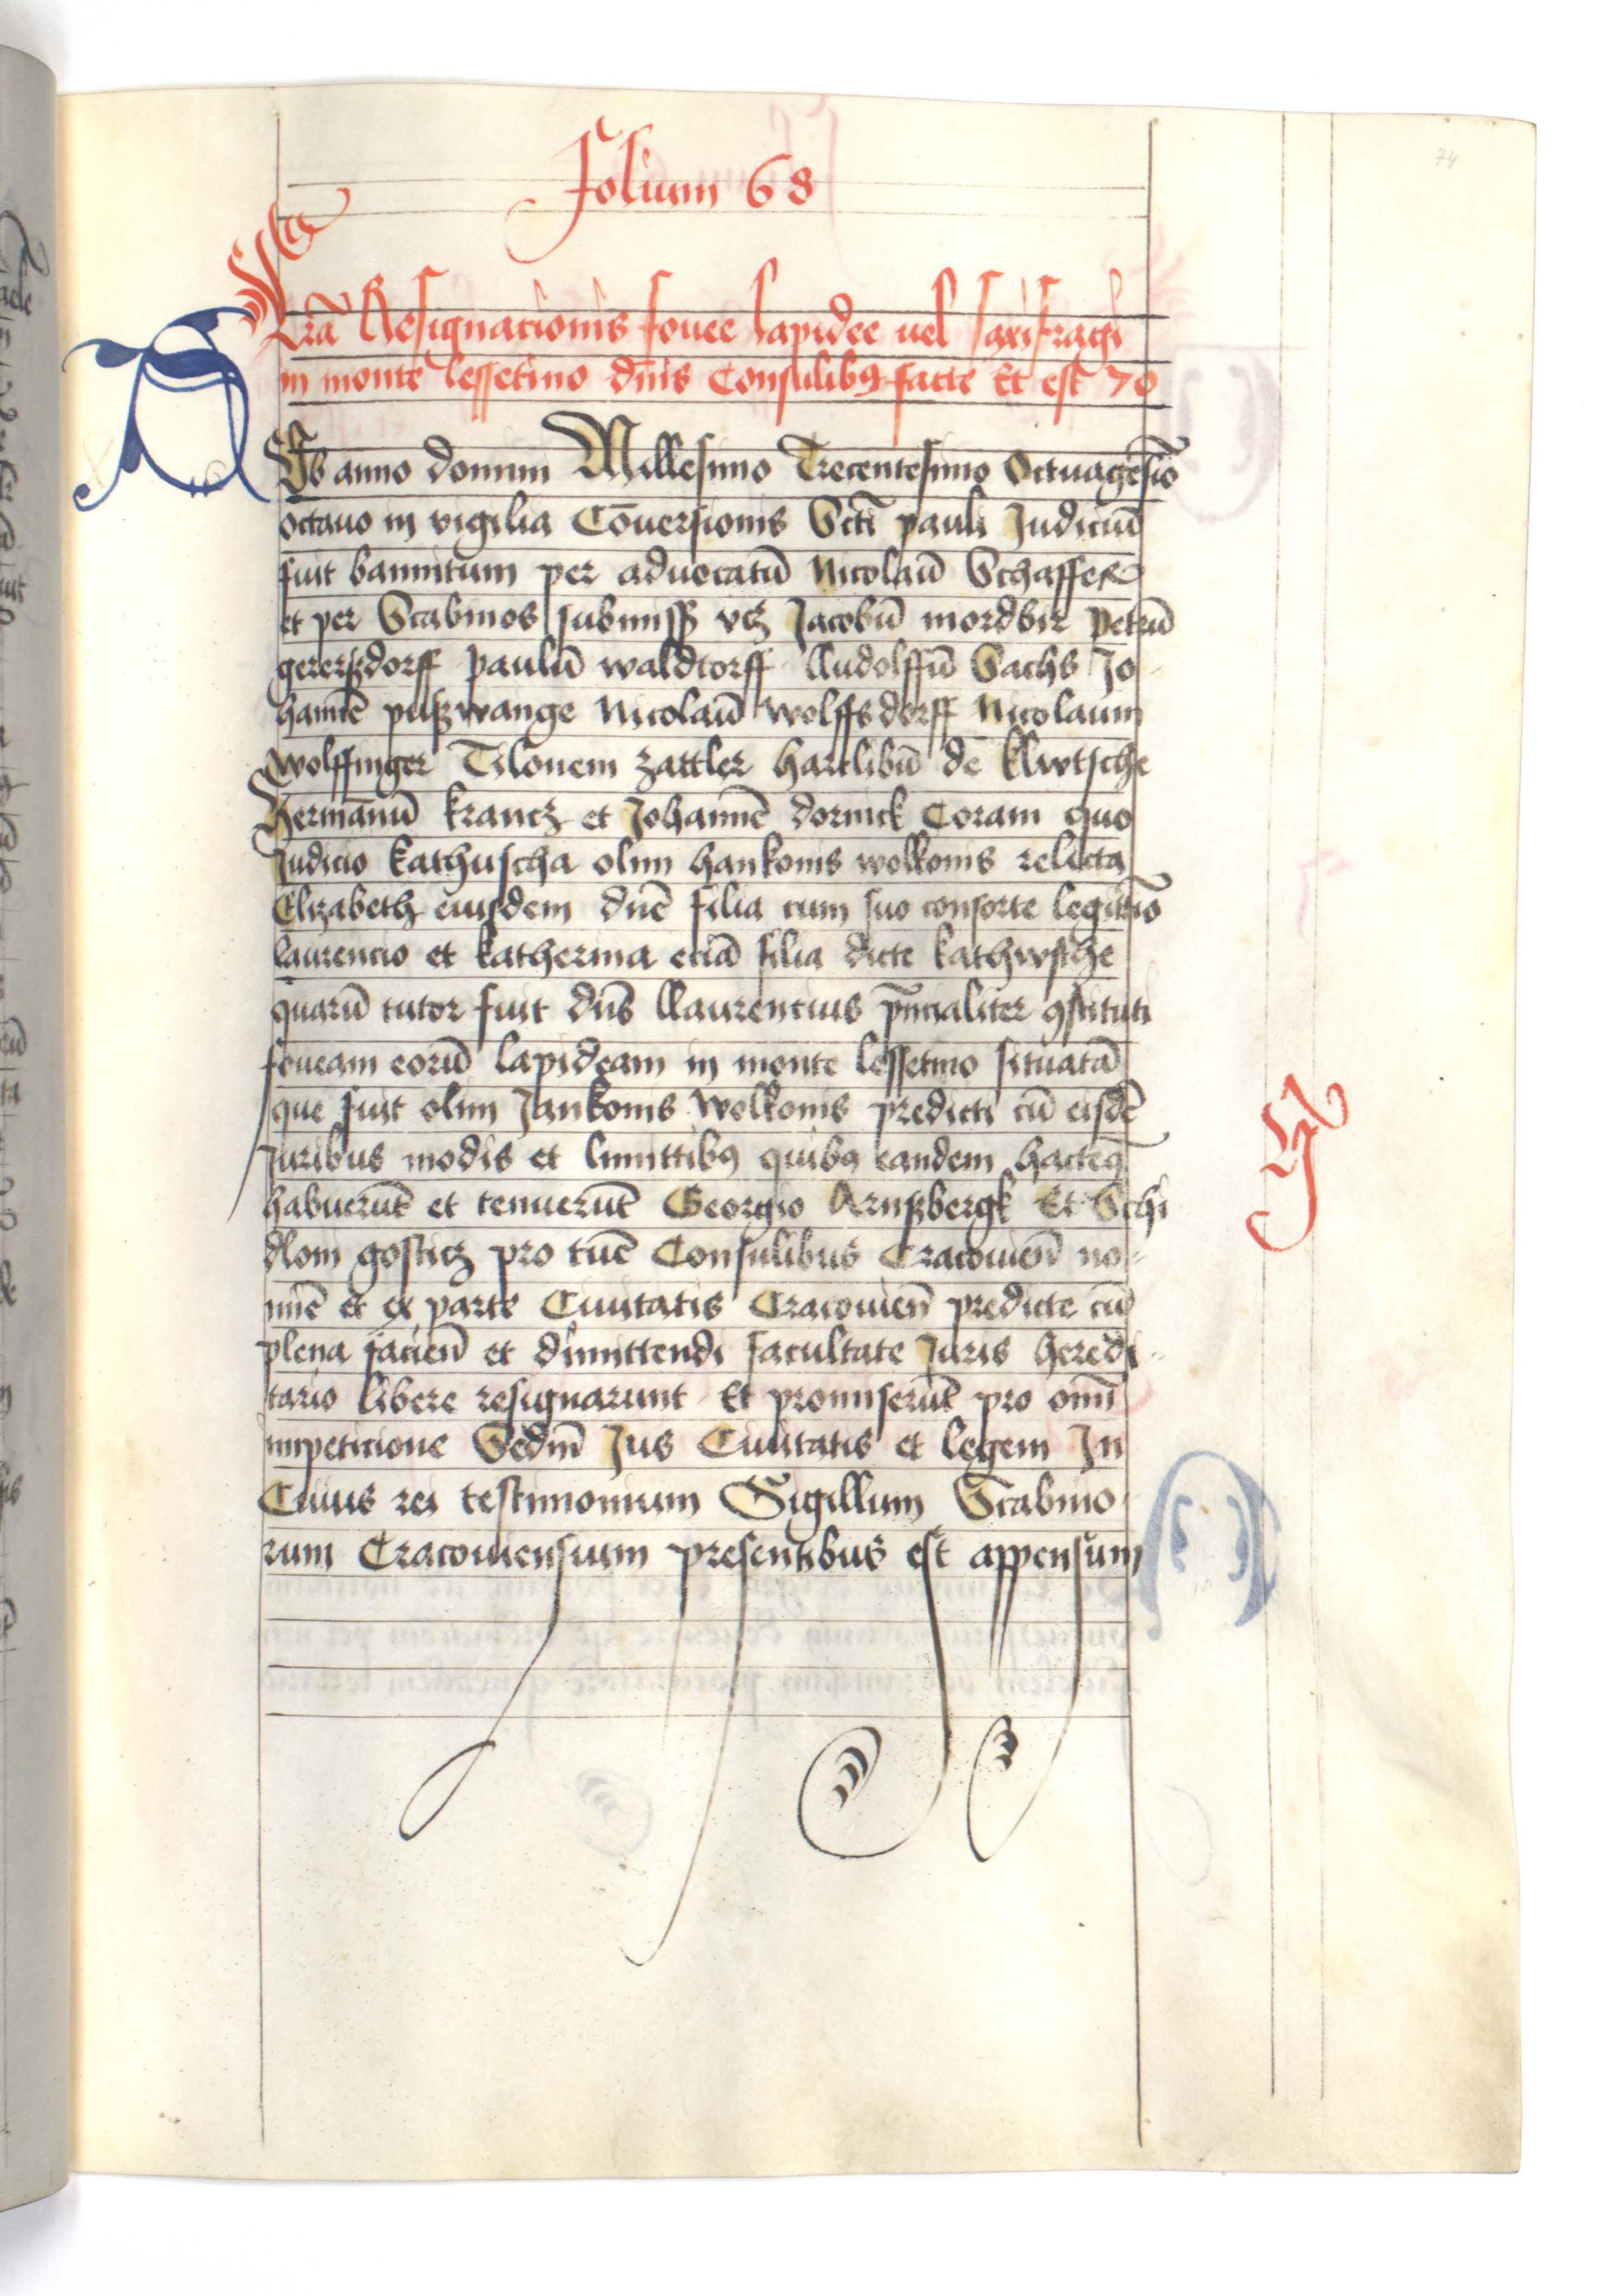 74
Folium 68
Lrā Resignationis fouee lapidee uel saxifragi
in monte lessetino dn̄is Consulibꝯ facte Et est 70
Ab anno domini Millesimo Trecentesimo Octuagesīo
octauo in vigilia Cōuersionis Sctī pauli Judiciū
fuit bannitum per aduocatū Nicolaū Schaffer
et per Scabinos subniss vcꝫ Jacobū mordbir Petrū
gererßdorff paulū waldtorff Rudolffū Sachs Jo-
hannē pußwange Nicolaū wolffsdorff Nicolaum
wolffinger Tilonem zattler hartlibū de klwtsche
hermānū kranctz et Johannē dornick Coram quo
Judicio kathuscha olim hankonis wolkonis relicta
Elizabeth eiusdem dn̄e filia cum suo consorte legittīo
laurencio et katherina eciā filia dicte kathwsche
quarū tutor fuit dn̄s llaurencius pn̄cialiter ꝯstituti
foueam eorū lapideam in monte lessetino situatā
que fuit olim Jankonis wolkonis predicti cū eisdē
Juribus modis et limittibꝯ quibꝯ eandem hacteꝯ
habuerūt et tenuerūt Georgio Arnßbergk Et Schi
dlom gosticz pro tūc Consulibus Cracouien̄ no-
mīe et ex parte Ciuitatis Cracouien̄ predicte cū
plena facien̄ et dimittendi facultate Juris heredi-
tario libere resignarunt Et promiserūt pro omī
impeticione Sedm̄ Jus Ciuitatis et legem In
Cuius rei testimonium Sigillum Scabino-
rum Cracouiensium presentibus est appensum